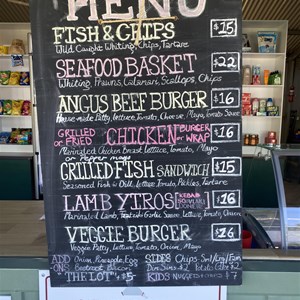 MENU
FISH & CHIPS $15
Wild Caught Whiting, Chips, Tartare
SEAFOOD BASKET $22
Whiting, Prawns, Calamari, Scallops, Chips
ANGUS BEEF BURGER $16
House-made Patty, lettuce, Tomato, Cheese, Mayo
GRILLED or FRIED CHICKEN BURGER or WRAP $16
Marinated Chicken Breast, Lettuce, Tomato, Mayo
or Pepper mayo
GRILLED FISH SANDWICH $15
Seasoned Fish, Dill, Lettuce, Tomato, Pickles, Tartare
LAMB YIROS KEBAB SOUVLAKI $16
Marinated Lamb, Garlic Sauce, Lettuce, Tomato, Onion
VEGGIE BURGER $26
Veggie Patty, Lettuce, Tomato, Onion, Mayo
ADD ONS Onion, Pineapple, Egg
Beetroot, Bacon
THE LOT + $5
SIDES Chips
Dim Sims $2 Potato Cake $2
KIDS NUGGETS & CHIPS $7